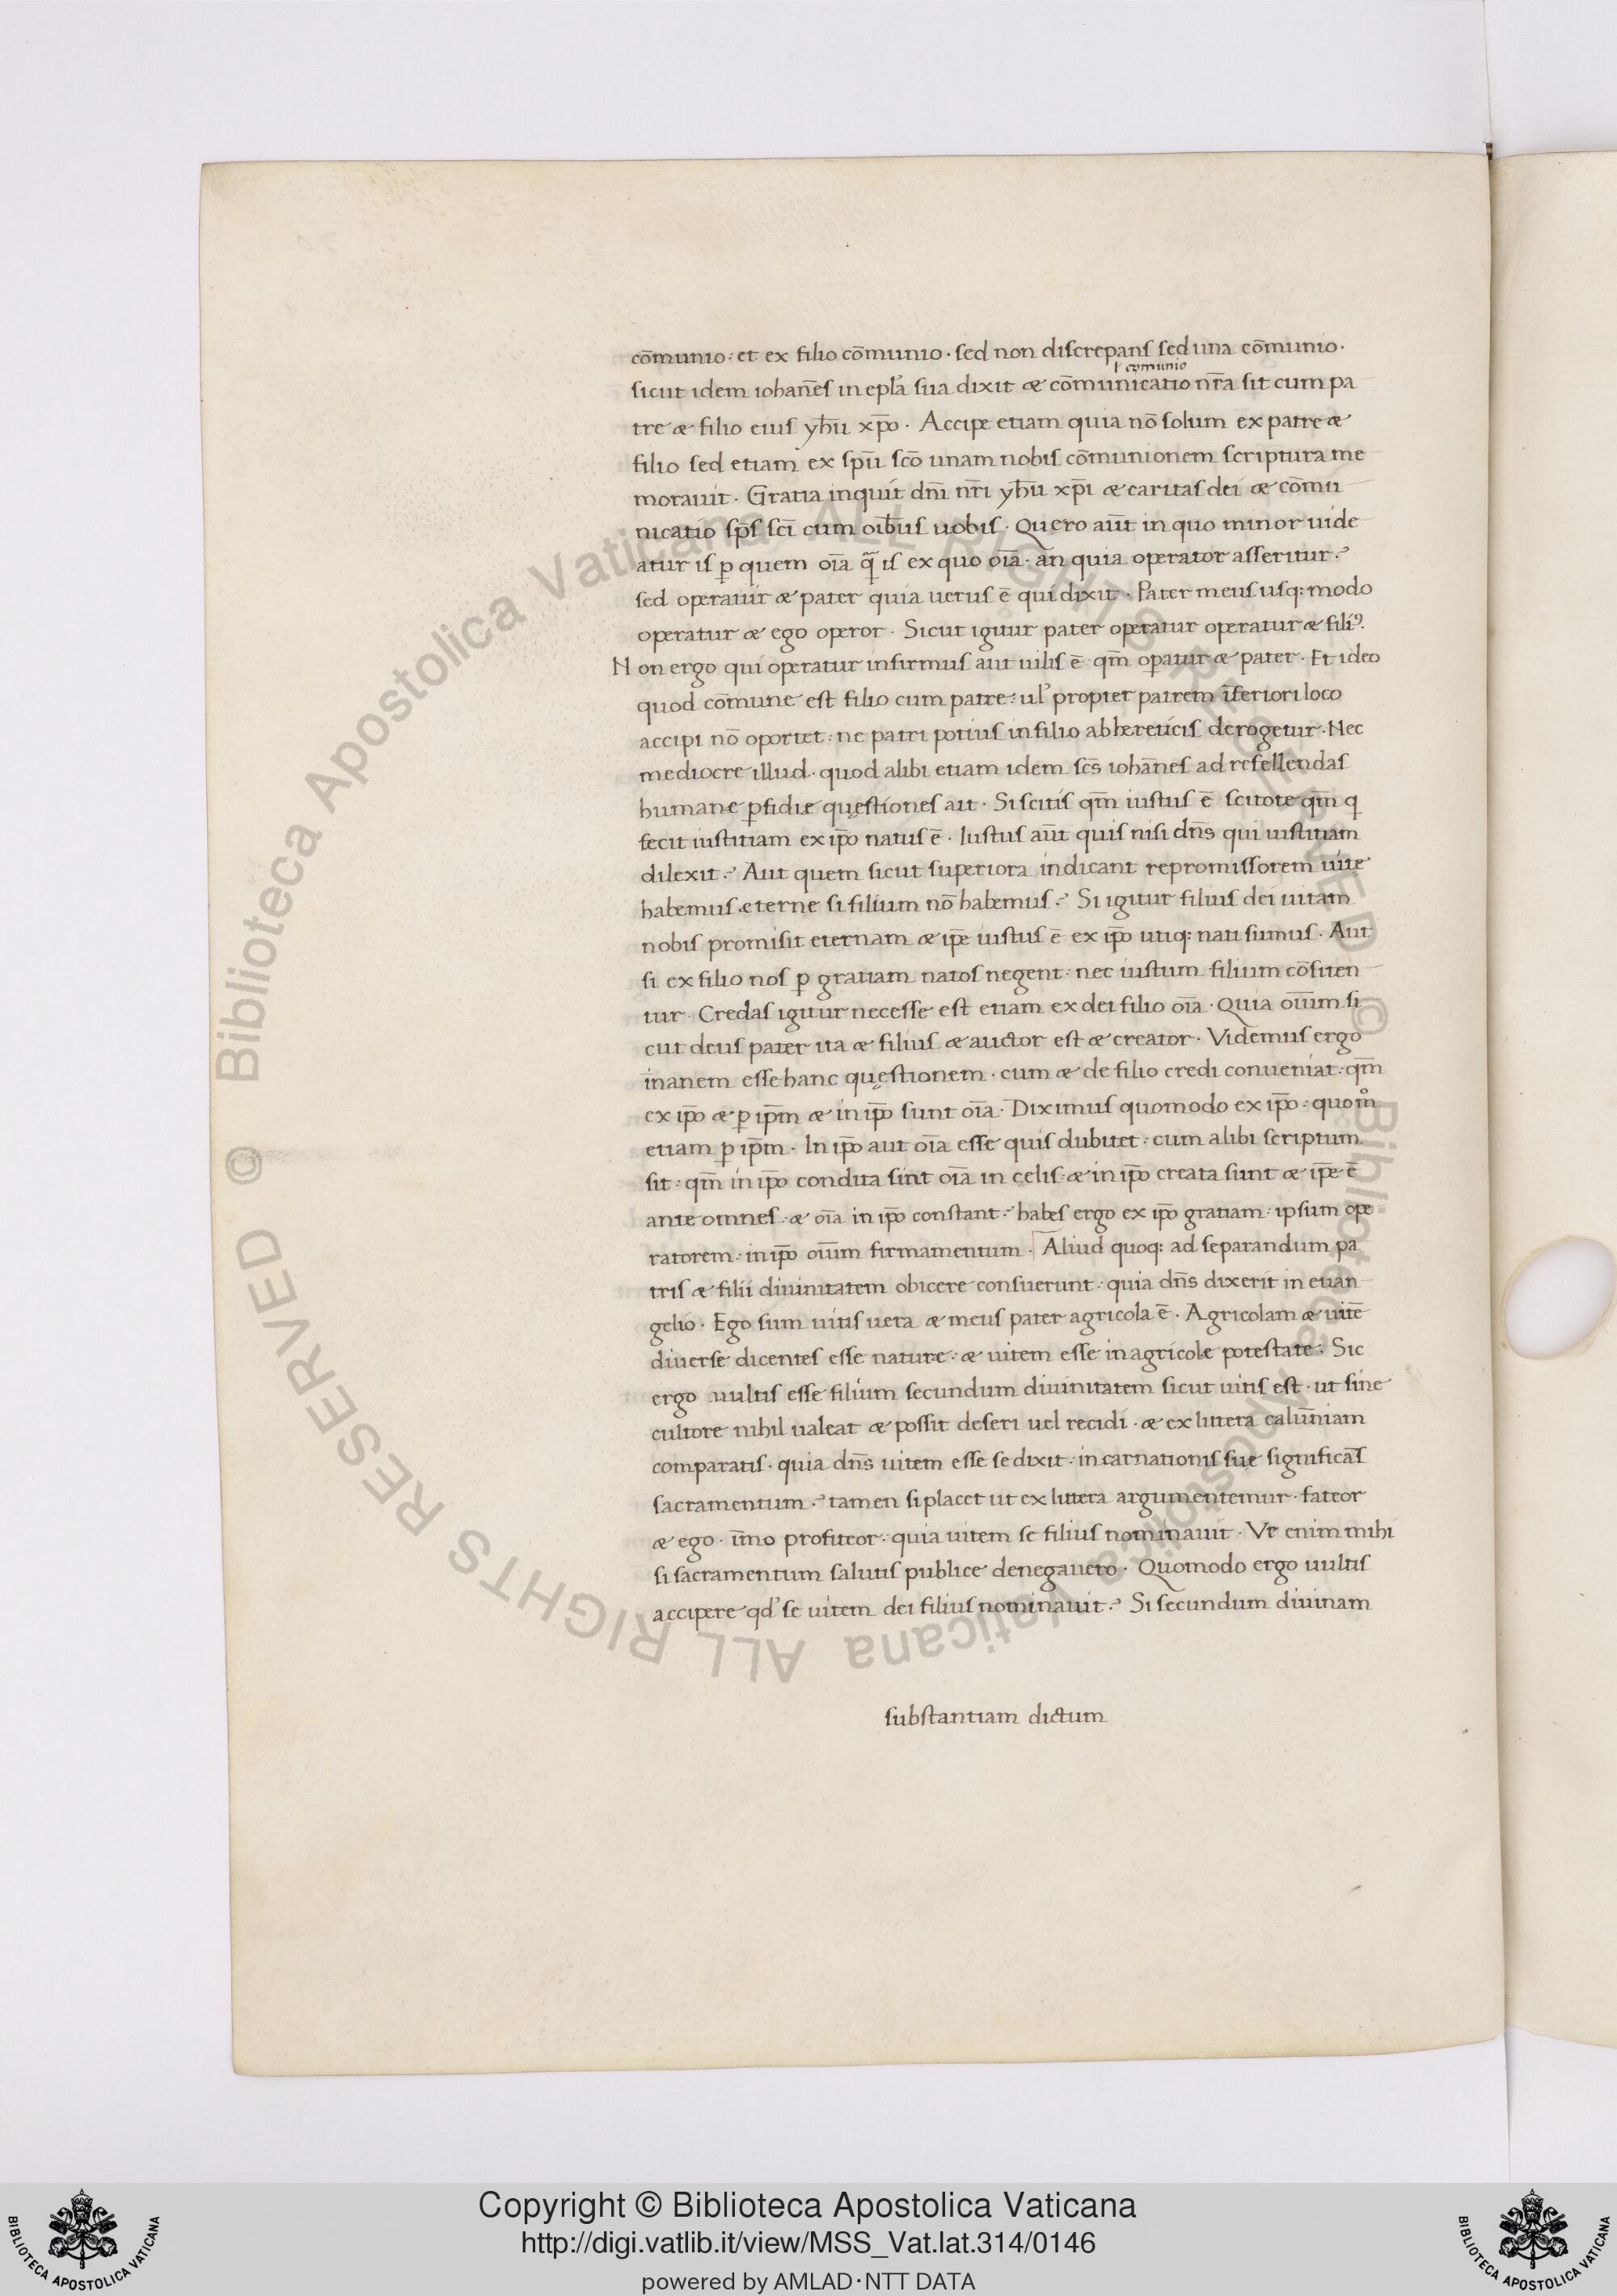 cōmunio : et ex filio cōmunio · sed non discrepans sed una cōmunio ·
ł comunio
sicut idem iohañes in epl̃a sua dixit & cōmunicatio nr̄a sit cum pa
tre & filio eius yh̄u xp̄o · Accipe etiam quia nō solum ex patre &
filio sed etiam ex spū scō unam nobis cōmunionem scriptura me
morauit · Gratia inquit dn̄i nr̄i yh̄u xp̄i & caritas dei & cōmu
nicatio sp̄s sc̄i cum oīb̄us uobis · Quero aūt in quo minor uide
atur is ꝑ quem oīa q̄ is ex quo oīa · an quia operator asseritur ?
sed operatur & pater quia uerus ē qui dixit · Pater meus usq: modo
operatur & ego operor · Sicut igitur pater operatur operatur & filiꝰ.
Non ergo qui operatur infirmus aut uilis ē : qm̄ oꝑatur & pater · Et ideo
quod cōmune est filio cum patre : ul' propter patrem īferiori loco
accipi nō oportet : ne patri potius in filio ab hereticis derogetur · Nec
mediocre illud · quod alibi etiam idem sc̄s iohānes ad refellendas
humane ꝑfidie quęstiones ait · Si scitis qm̄ iustus ē scitote qm̄ q
fecit iustitiam ex ip̄o natus ē · Iustus aūt quis nisi dn̄s qui iustitiam
dilexit ? Aut quem sicut superiora indicant repromissorem uite
habemus eterne si filium nō habemus ? Si igitur filius dei uitam
nobis promisit eternam & ip̄e iustus ē ex ip̄o utiq: nati sumus · Aut
si ex filio nos ꝑ gratiam natos negent : nec iustum filium cōfiten
tur · Credas igitur necesse est etiam ex dei filio oīa · Quia oīum si
cut deus pater ita & filius & auctor est & creator · Videmus ergo
inanem esse hanc quęstionem · cum & de filio credi conueniat : qm̄
ex ip̄o & ꝑ ip̄m & in ip̄o sunt oīa · Diximus quomodo ex ip̄o : quom̊
etiam ꝑ ip̄m · In ip̄o aut oīa esse quis dubitet : cum alibi scriptum
sit : qm̄ in ip̄o condita sint oīa in celis : & in ip̄o creata sunt & ip̄e ē
ante omnes : & oīa in ip̄o constant ? habes ergo ex ip̄o gratiam : ipsum ope
ratorem : in ip̄o oīum firmamentum · Aliud quoq: ad separandum pa
tris & filii diuinitatem obicere consuerunt : quia dn̄s dixerit in euan
gelio · Ego sum uitis uera & meus pater agricola ē · Agricolam & uitē
diuerse dicentes esse nature : & uitem esse in agricole potestate · Sic
ergo uultis esse filium secundum diuinitatem sicut uitis est · ut sine
cultore nihil ualeat & possit deseri uel recidi · & ex littera calūniam
comparatis · quia dn̄s uitem esse se dixit : incarnationis sue significās
sacramentum ? tamen si placet ut ex littera argumentemur · fateor
& ego · īmo profiteor : quia uitem se filius nominauit · Ve enim mihi
si sacramentum salutis publice denegauero · Quomodo ergo uultis
accipere qd' se uitem dei filius nominauit ? Si secundum diuinam
substantiam dictum
© Biblioteca Apostolica Vaticana ALL RIGHTS RESERVED © Biblioteca Apostolica Vaticana ALL RIGHTS RESERVED
Copyright © Biblioteca Apostolica Vaticana
http://digi.vatlib.it/view/MSS_Vat.lat.314/0146
powered by AMLAD·NTT DATA
BIBLIOTECA APOSTOLICA VATICANA
BIBLIOTECA APOSTOLICA VATICANA